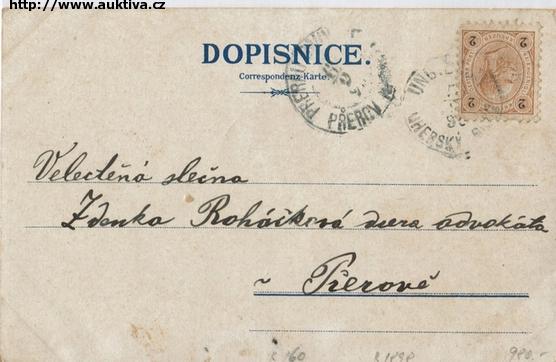 http://www.auktiva.cz
DOPISNICE.
Correspondenz-Karte.
PŘEROV
2 2
UHERSKÝ
Velectěná slečna
Zdenka Roháčková dcera advokáta
v Přerově
980.-